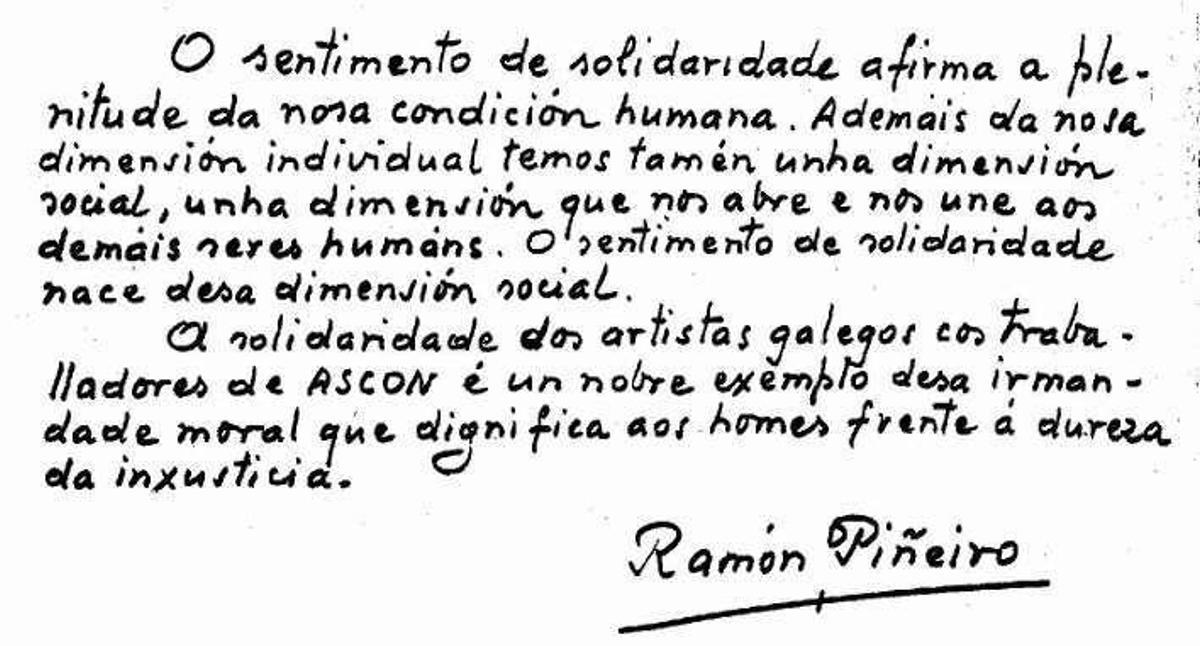 O sentimento de solidaridade afirma a ple-
nitude da nosa condición humana. Ademáis da nosa
dimensión individual temos tamén unha dimensión
social, unha dimensión que nos abre e nos une aos
demáis seres humáns. O sentimento de solidaridade
nace desa dimensión social.
A solidaridade dos artistas galegos cos traba-
lladores de ASCON é un nobre exemplo desa irman-
dade moral que dignifica aos homes frente á dureza
da inxusticia.
Ramón Piñeiro